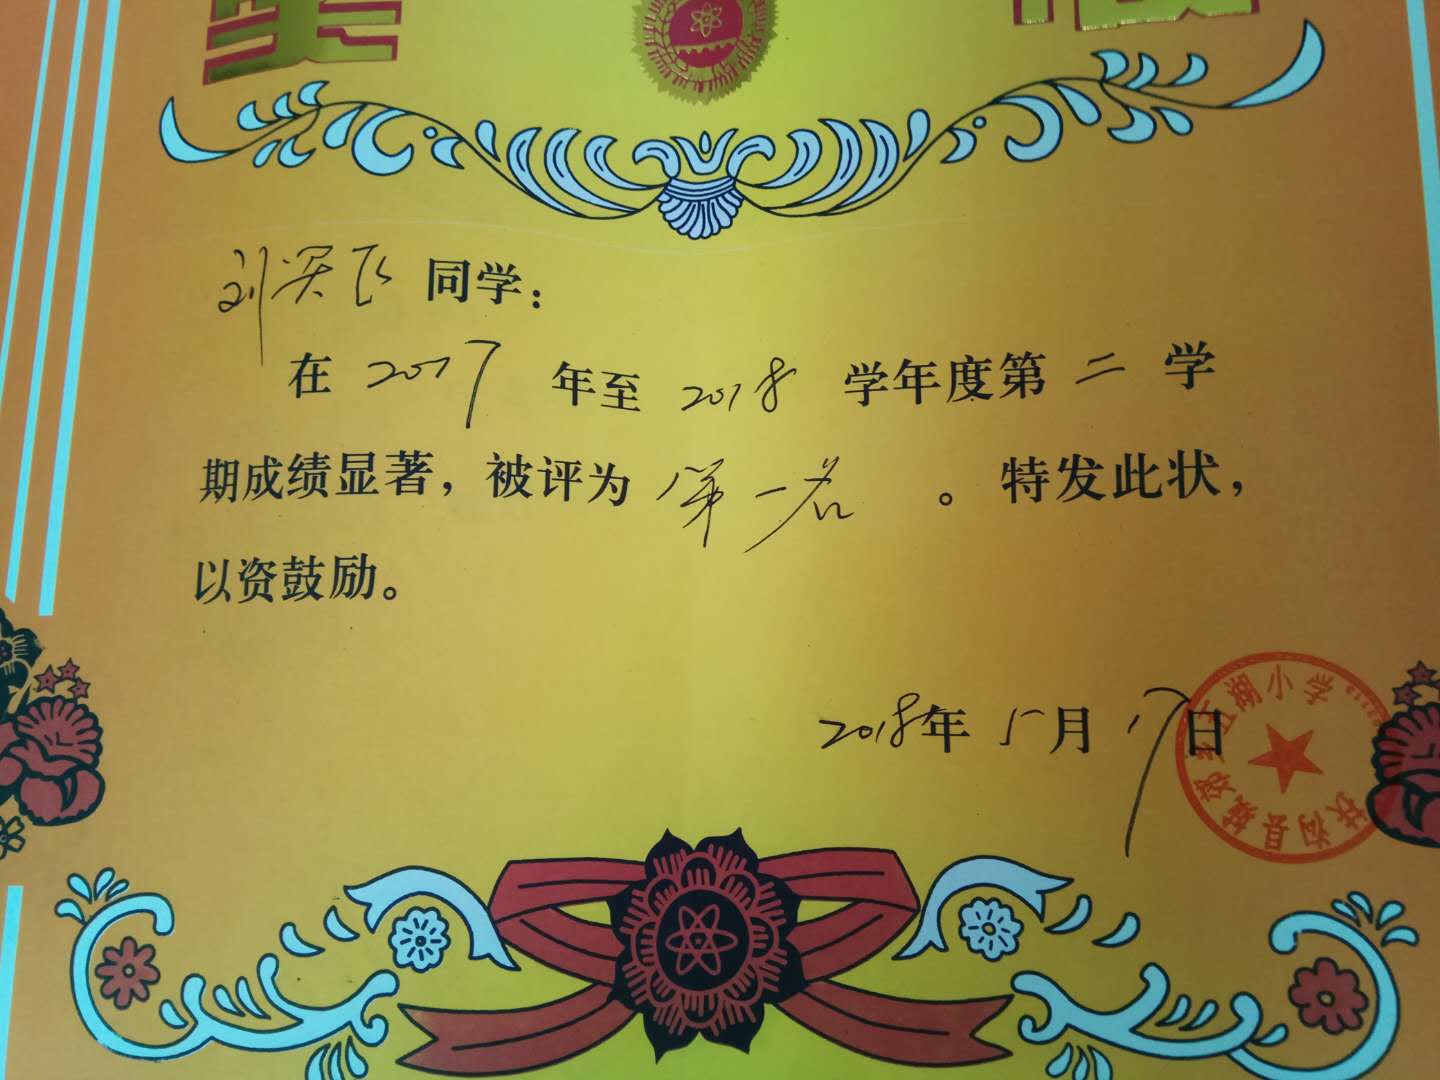 刘昊飞同学：
在2017年至2018学年度第二学
期成绩显著，被评为第一名。特发此状，
以资鼓励。
2018年5月17日
扶沟县城郊乡五湖小学